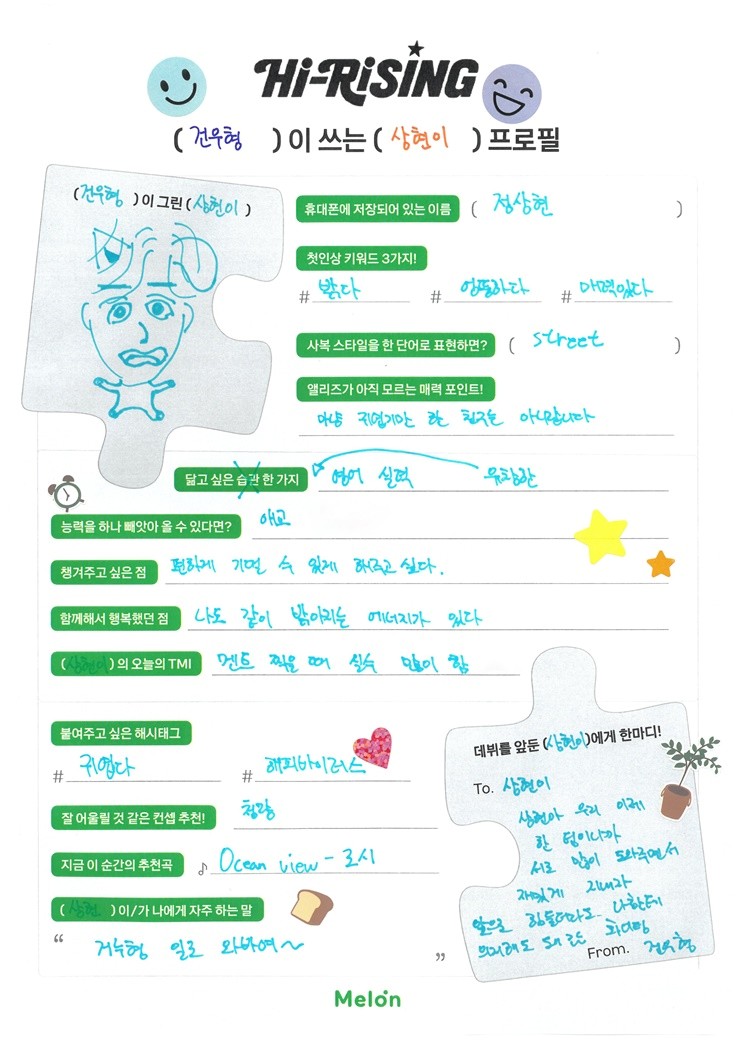 Hi-RiSING
( 건우형 ) 이 쓰는 ( 상현이 ) 프로필
(건우형 ) 이 그린 ( 상현이 )
휴대폰에 저장되어 있는 이름 ( 정상현 )
첫인상 키워드 3가지!
# 밝다 # 엉뚱하다 # 매력있다
사복 스타일을 한 단어로 표현하면? ( street )
앨리즈가 아직 모르는 매력 포인트!
마냥 귀엽기만 한 친구는 아니랍니다
닮고 싶은 습관 한 가지 영어 실력 유창한
능력을 하나 빼앗아 올 수 있다면? 애교
챙겨주고 싶은 점 편하게 기댈 수 있게 해주고 싶다.
함께해서 행복했던 점 나도 같이 밝아지는 에너지가 있다
(상현이) 의 오늘의 TMI 멘트 찍을 때 실수 많이 함
붙여주고 싶은 해시태그
# 귀엽다 # 해피바이러스
잘 어울릴 것 같은 컨셉 추천! 청량
지금 이 순간의 추천곡 ♪ Ocean view - 로시
( 상현 ) 이/가 나에게 자주 하는 말
“ 거누형 일로 와바여~ ”
데뷔를 앞둔 (상현이)에게 한마디!
To. 상현이
상현아 우리 이제
한 팀이니까
서로 많이 도와주면서
재밌게 지내자
앞으로 힘들더라도 나한테
의지해도 돼 화이팅
From. 건우형
Melon